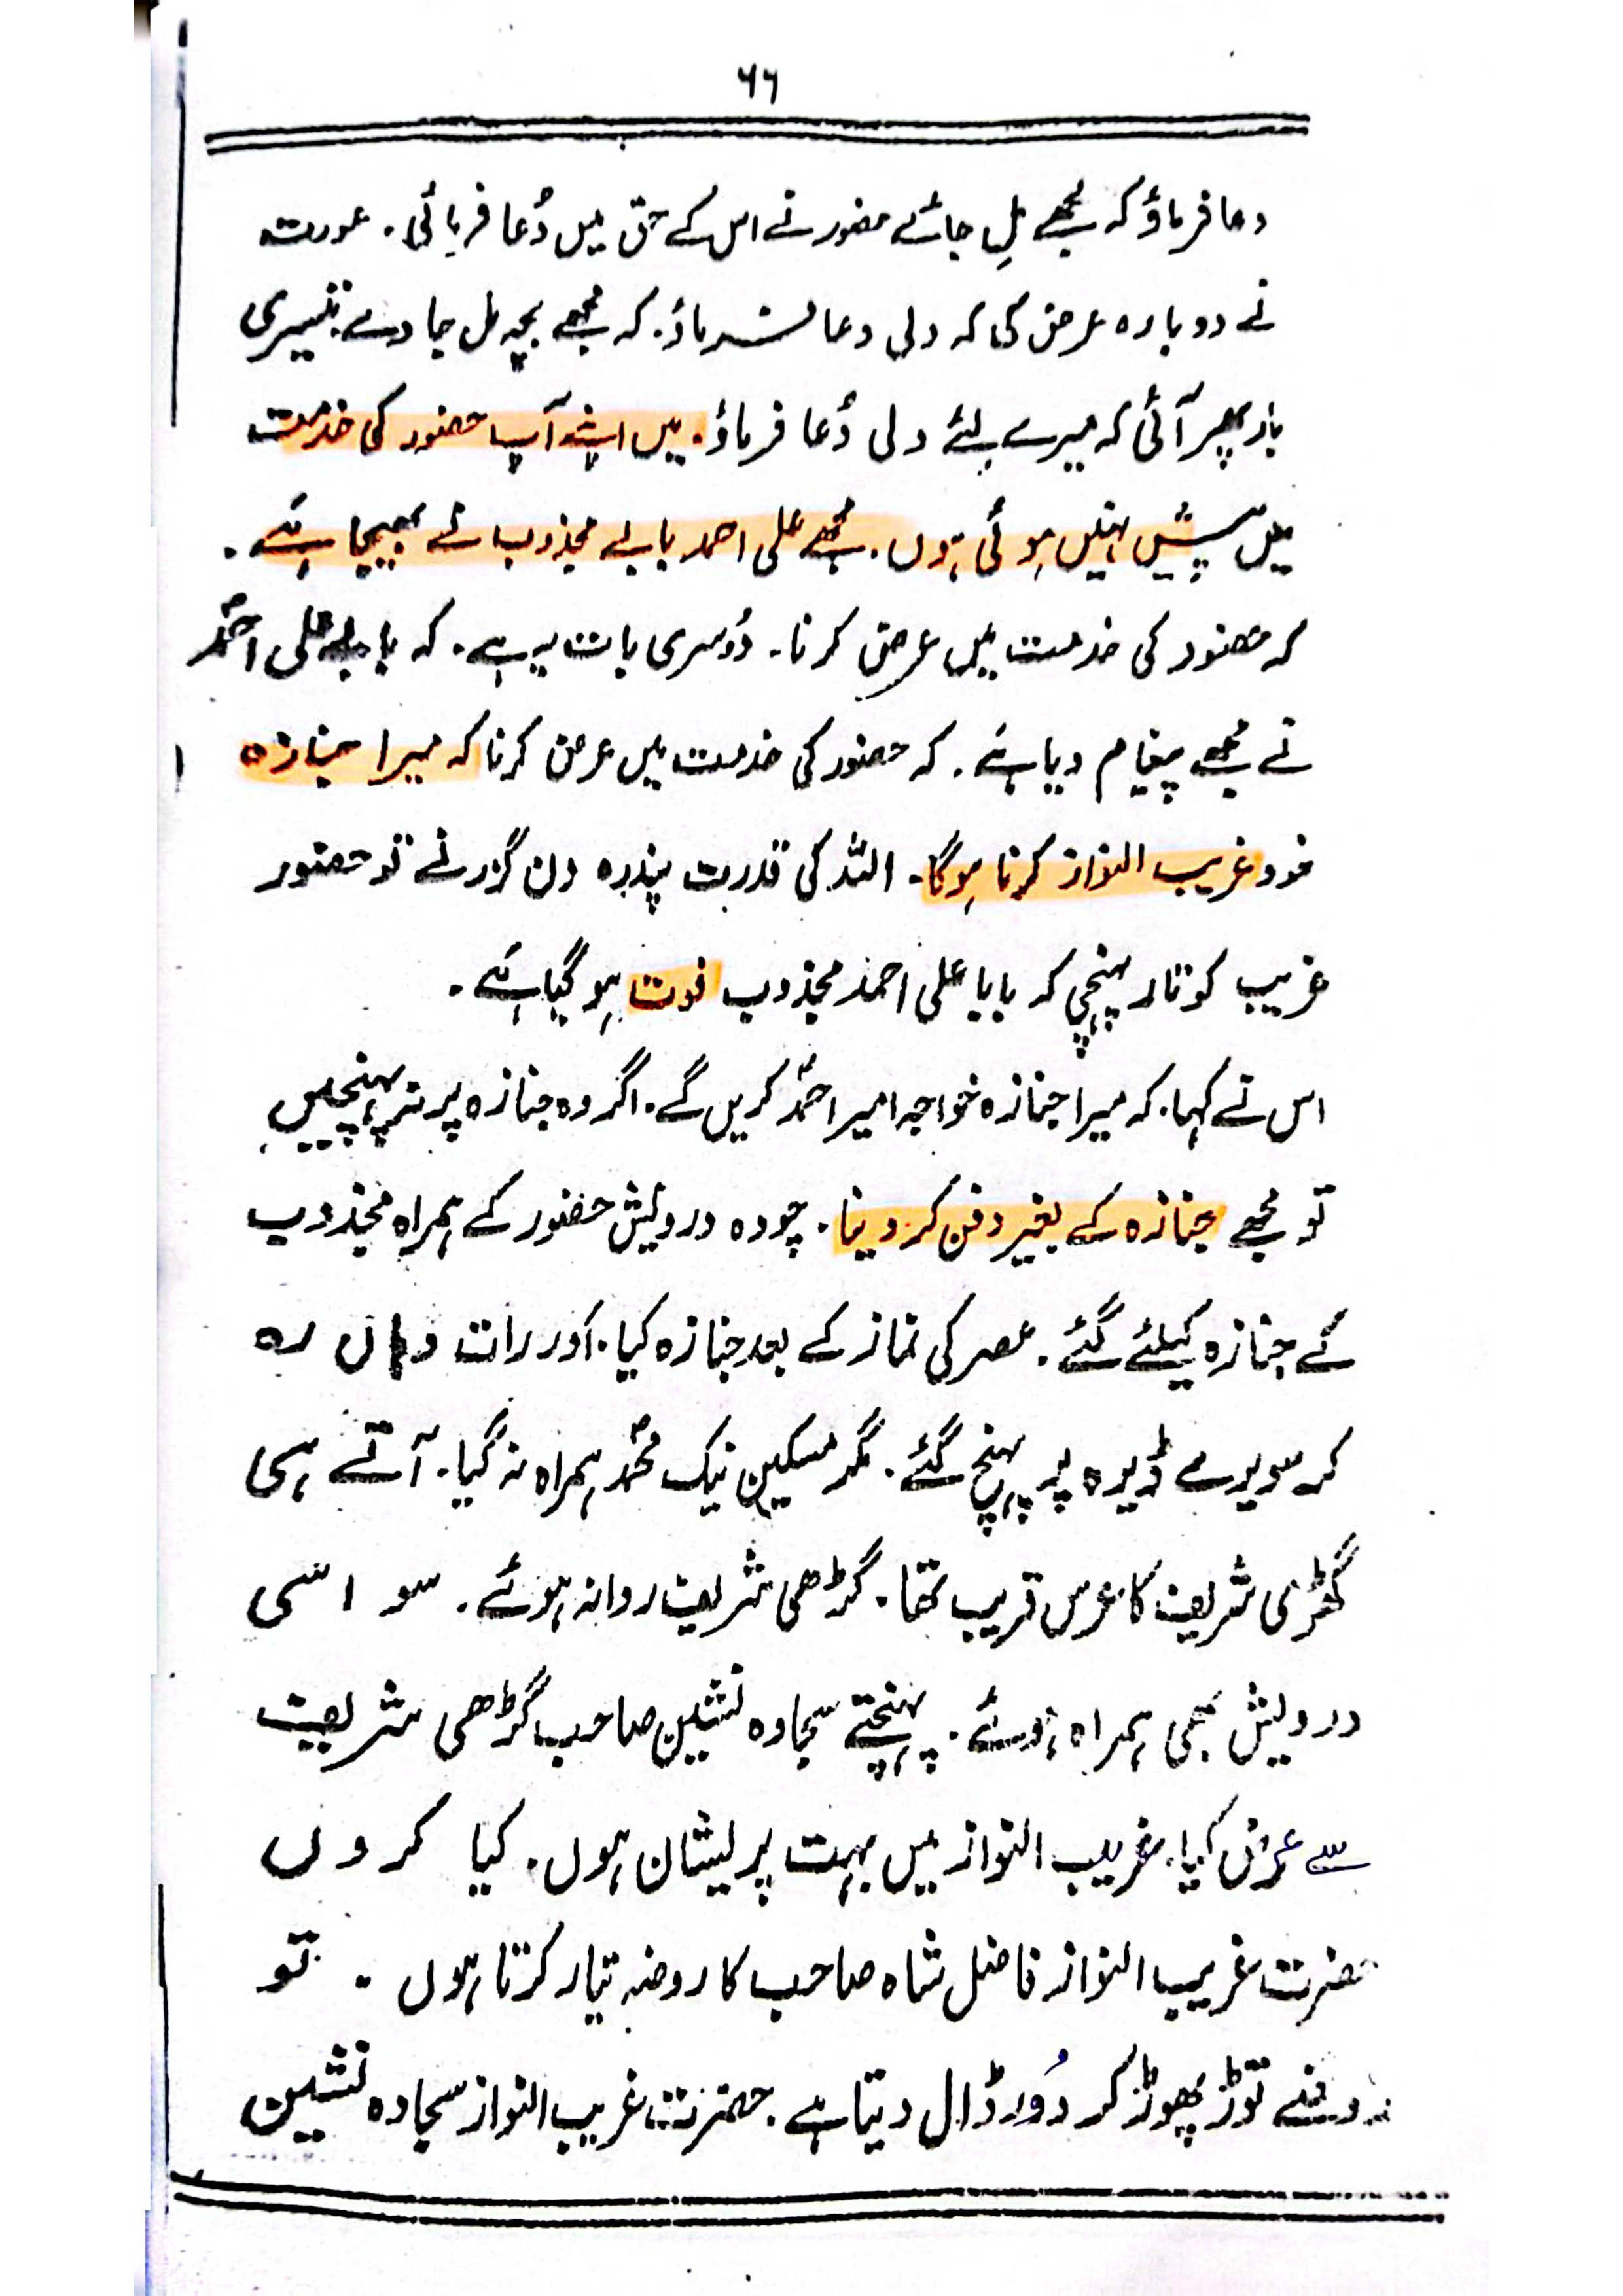 ۶۶
دعا فرماؤ کہ مجھے مِل جائے حضور نے اس کے حق میں دُعا فرمائی۔ عورت
نے دوبارہ عرض کی کہ دلی دعا فرماؤ۔ کہ مجھے بچہ مل جاوے۔ تیسری
بار پھر آئی کہ میرے لئے دلی دُعا فرماؤ۔ میں اپنے آپ حضور کی خدمت
میں پیش نہیں ہوئی ہوں۔ مجھے علی احمد بابے مجذوب نے بھیجا ہے۔
کہ حضور کی خدمت میں عرض کرنا۔ دُوسری بات یہ ہے۔ کہ بابے علی احمد
نے مجھے پیغام دیا ہے۔ کہ حضور کی خدمت میں عرض کرنا کہ میرا جنازہ
خود غریب النواز کرنا ہوگا۔ اللہ کی قدرت پندرہ دن گزرنے تو حضور
غریب کو تار پہنچی کہ بابا علی احمد مجذوب فوت ہو گیا ہے۔
اس نے کہا۔ کہ میرا جنازہ خواجہ امیر احمدؒ کریں گے۔ اگر وہ جنازہ پر نہ پہنچیں
تو مجھے جنازہ کے بغیر دفن کر دینا۔ چودہ درویش حضور کے ہمراہ مجذوب
کے جنازہ کیلئے گئے۔ عصر کی نماز کے بعد جنازہ کیا۔ اور رات وہاں رہ
کر سویرے ڈیرہ پر پہنچ گئے۔ مگر مسکین نیک محمد ہمراہ نہ گیا۔ آتے ہی
گھڑی شریف کا عرس قریب تھا۔ گڑھی شریف روانہ ہوئے۔ سو اسی
درویش بھی ہمراہ ہوئے۔ پہنچتے سجادہ نشین صاحب گڑھی شریف
سے عرض کیا۔ غریب النواز میں بہت پریشان ہوں۔ کیا کروں
حضرت غریب النواز فاضل شاہ صاحب کا روضہ تیار کرتا ہوں۔ تو
روضے توڑ پھوڑ کر دُور ڈال دیتا ہے۔ حضرت غریب النواز سجادہ نشین